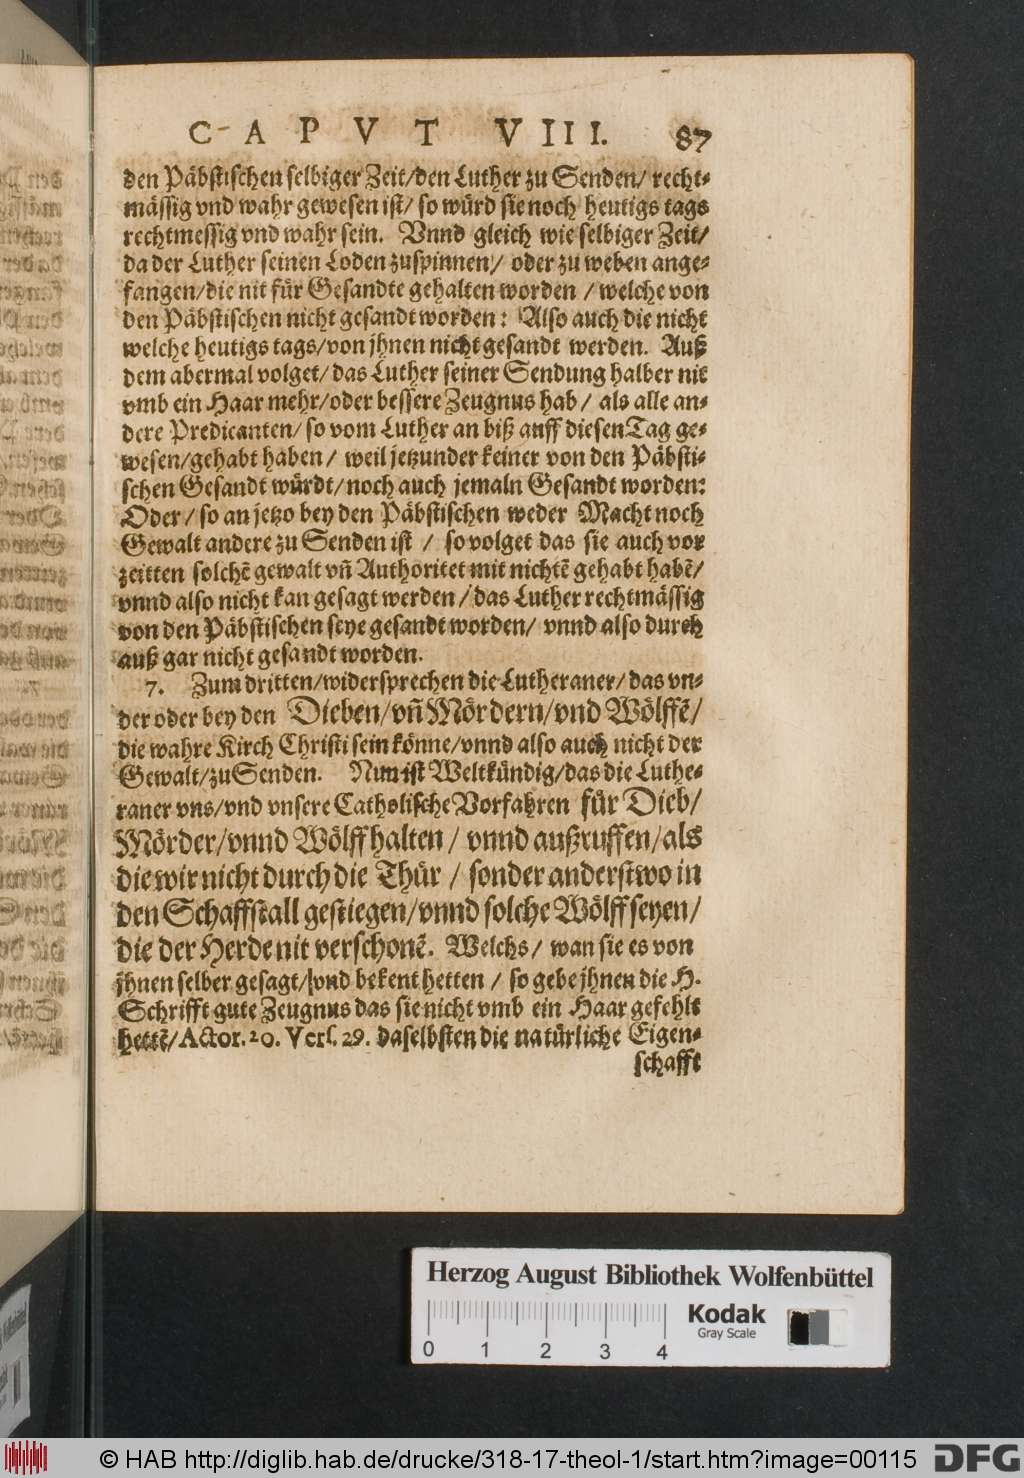 CAPVT VIII. 87
den Päbstischen selbiger Zeit/den Luther zu Senden/ recht-
mässig vnd wahr gewesen ist/ so würd sie noch heutigs tags
rechtmessig vnd wahr sein. Vnnd gleich wie selbiger Zeit/
da der Luther seinen Loden zuspinnen/ oder zu weben ange-
fangen/die nit für Gesandte gehalten worden / welche von
den Päbstischen nicht gesandt worden: Also auch die nicht
welche heutigs tags/von jhnen nicht gesandt werden. Auß
dem abermal volget/ das Luther seiner Sendung halber nit
vmb ein Haar mehr/oder bessere Zeugnus hab/ als alle an-
dere Predicanten/ so vom Luther an biß auff diesen Tag ge-
wesen/gehabt haben/ weil jetzunder keiner von den Päbsti-
schen Gesandt würdt/noch auch jemaln Gesandt worden:
Oder/ so an jetzo bey den Päbstischen weder Macht noch
Gewalt andere zu Senden ist / so volget das sie auch vor
zeitten solchē gewalt vñ Authoritet mit nichtē gehabt habē/
vnnd also nicht kan gesagt werden/das Luther rechtmässig
von den Päbstischen seye gesandt worden/ vnnd also durch
auß gar nicht gesandt worden.
7. Zum dritten/widersprechen die Lutheraner/das vn-
der oder bey den Dieben/vñ Mördern/vnd Wölffē/
die wahre Kirch Christi sein könne/vnnd also auch nicht der
Gewalt/zu Senden. Nun ist Weltkündig/das die Luthe-
raner vns/vnd vnsere Catholische Vorfahren für Dieb/
Mörder/vnnd Wölff halten / vnnd außruffen/als
die wir nicht durch die Thür / sonder anderstwo in
den Schaffstall gestiegen/vnnd solche Wölff seyen/
die der Herde nit verschonē. Welchs/ wan sie es von
jhnen selber gesagt/vnd bekent hetten / so gebe jhnen die H.
Schrifft gute Zeugnus das sie nicht vmb ein Haar gefehlt
hettē/Actor. 20. Vers. 29. daselbsten die natürliche Eigen-
schafft
Herzog August Bibliothek Wolfenbüttel
Kodak
Gray Scale
0 1 2 3 4
© HAB http://diglib.hab.de/drucke/318-17-theol-1/start.htm?image=00115
DFG